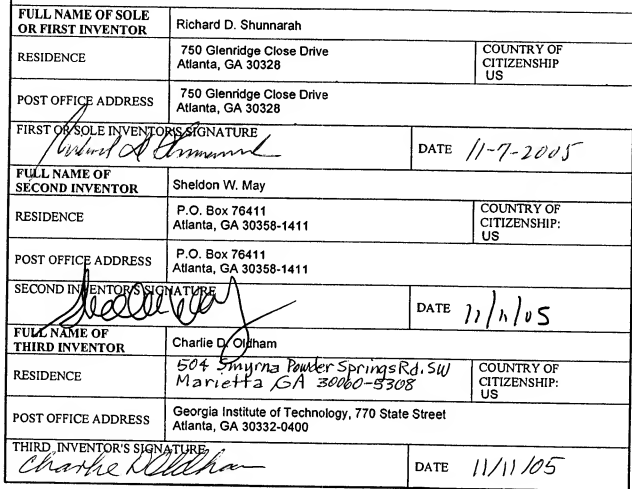 FULL NAME OF SOLE
OR FIRST INVENTOR
Richard D. Shunnarah
RESIDENCE
750 Glenridge Close Drive
Atlanta, GA 30328
COUNTRY OF
CITIZENSHIP
US
POST OFFICE ADDRESS
750 Glenridge Close Drive
Atlanta, GA 30328
FIRST OR SOLE INVENTOR'S SIGNATURE
DATE 11-7-2005
FULL NAME OF
SECOND INVENTOR
Sheldon W. May
RESIDENCE
P.O. Box 76411
Atlanta, GA 30358-1411
COUNTRY OF
CITIZENSHIP:
US
POST OFFICE ADDRESS
P.O. Box 76411
Atlanta, GA 30358-1411
SECOND INVENTOR'S SIGNATURE
DATE 11/11/05
FULL NAME OF
THIRD INVENTOR
Charlie D. Oldham
RESIDENCE
504 Smyrna Powder Springs Rd. SW
Marietta, GA 30060-5308
COUNTRY OF
CITIZENSHIP:
US
POST OFFICE ADDRESS
Georgia Institute of Technology, 770 State Street
Atlanta, GA 30332-0400
THIRD INVENTOR'S SIGNATURE
Charlie D Oldham
DATE 11/11/05